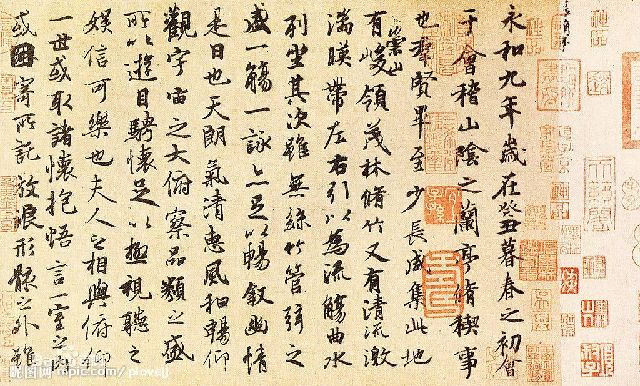 永和九年歲在癸丑暮春之初會
于會稽山陰之蘭亭脩稧事
也羣賢畢至少長咸集此地
有崇山峻領茂林脩竹又有清流激
湍暎帶左右引以為流觴曲水
列坐其次雖無絲竹管弦之
盛一觴一詠亦足以暢敘幽情
是日也天朗氣清惠風和暢仰
觀宇宙之大俯察品類之盛
所以遊目騁懷足以極視聽之
娛信可樂也夫人之相與俯仰
一世或取諸懷抱悟言一室之內
或因寄所託放浪形骸之外雖
昵图网 nipic.com/